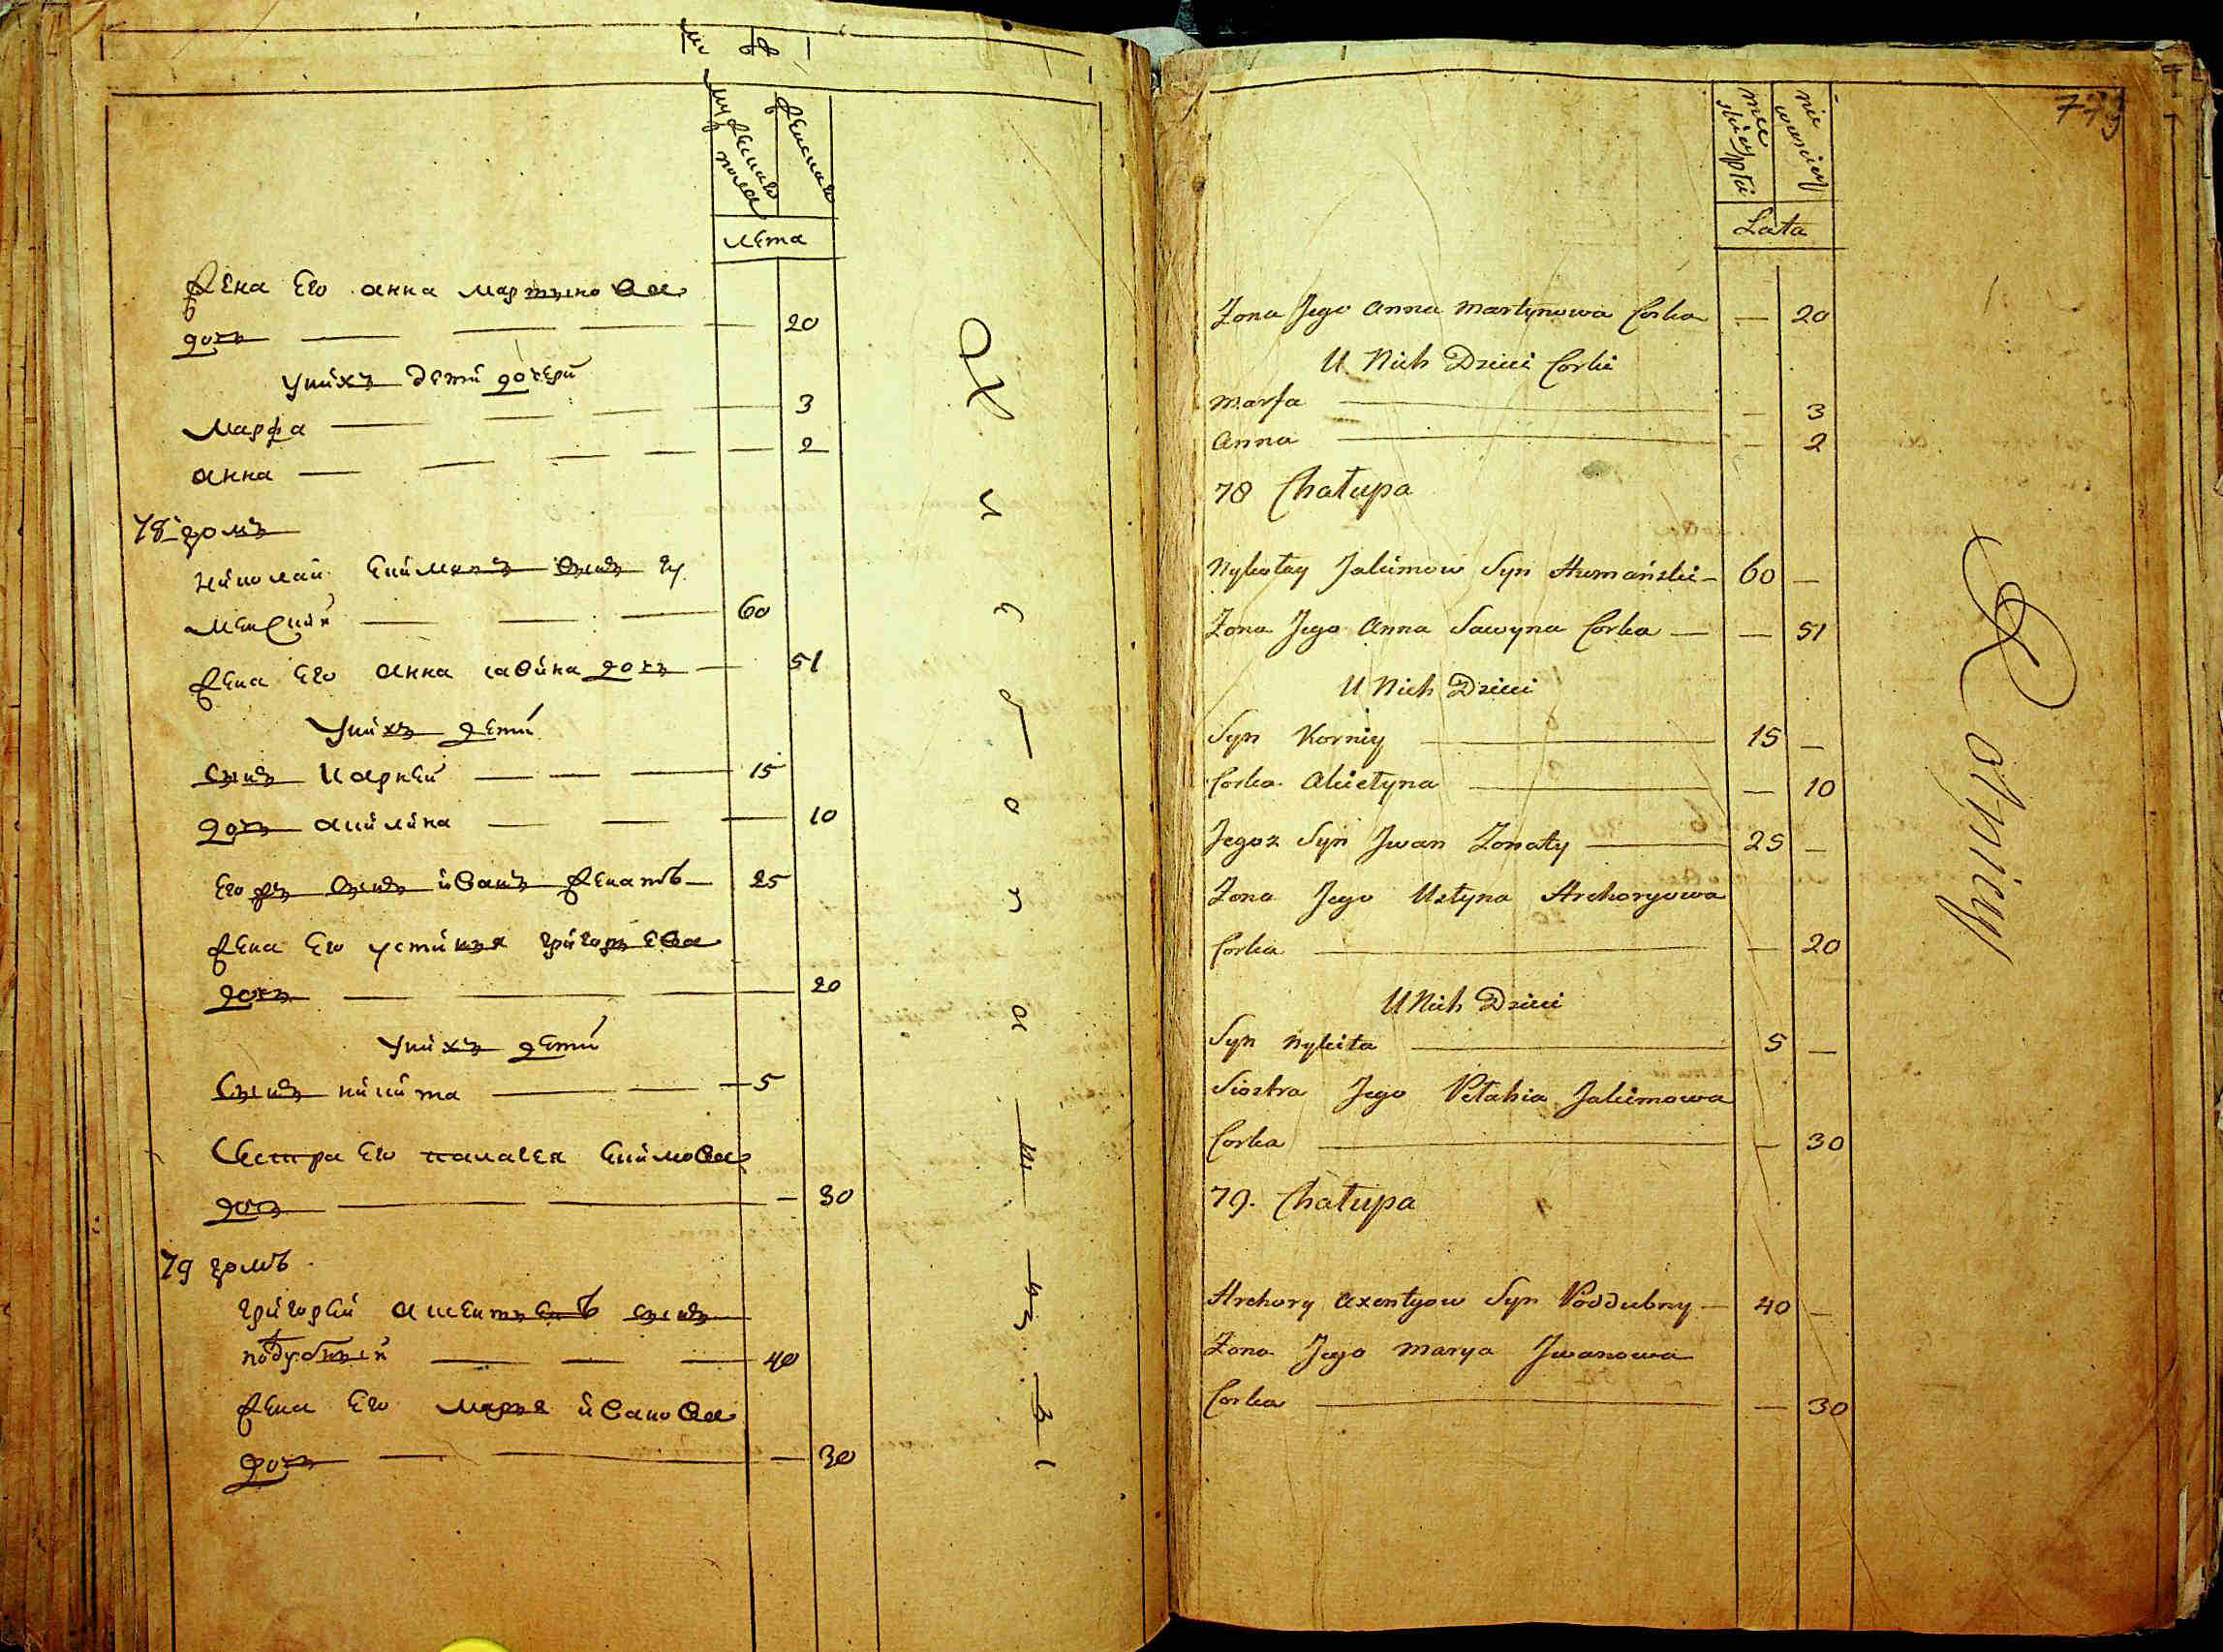 мужеска пола
женска
лета
жена его анна мартынова
дочь — 20
у них детй дочерй
марфа — 3
анна — 2
78 домъ
нйколай екймовъ сынъ гу
менскйй — 60
жена его анна савйна дочь — 51
у нйхъ детй
сынъ корней — 15
дочь акйлйна — 10
его жъ сынъ йванъ женатъ — 25
жена его устйнья грйгорьева
дочь — 20
у нйхъ детй
сынъ нйкйта — 5
сестра его паласея екймова
дочь — 30
79 домъ
грйгорей аксентьевъ сынъ
подубный — 40
жена его марья йванова
дочь — 30
779
Lata
Zona Jego Anna Martynowa Corka — 20
U Nich Dzieci Corki
Marfa — 3
Anna — 2
78 Chałupa
Nykołay Jakimow Syn Humański — 60 —
Zona Jego Anna Sawyna Corka — — 51
U Nich Dzieci
Syn Korniy — 15 —
Corka Akiełyna — — 10
Jegoz Syn Jwan Zonaty — 25 —
Zona Jego Ustyna Hrehorywa
Corka — — 20
U Nich Dzieci
Syn Nykita — 5 —
Siostra Jego Pełahia Jakimowa
Corka — — 30
79. Chałupa
Hrehory Axentyow Syn Poddubny — 40 —
Zona Jego Marya Jwanowa
Corka — — 30